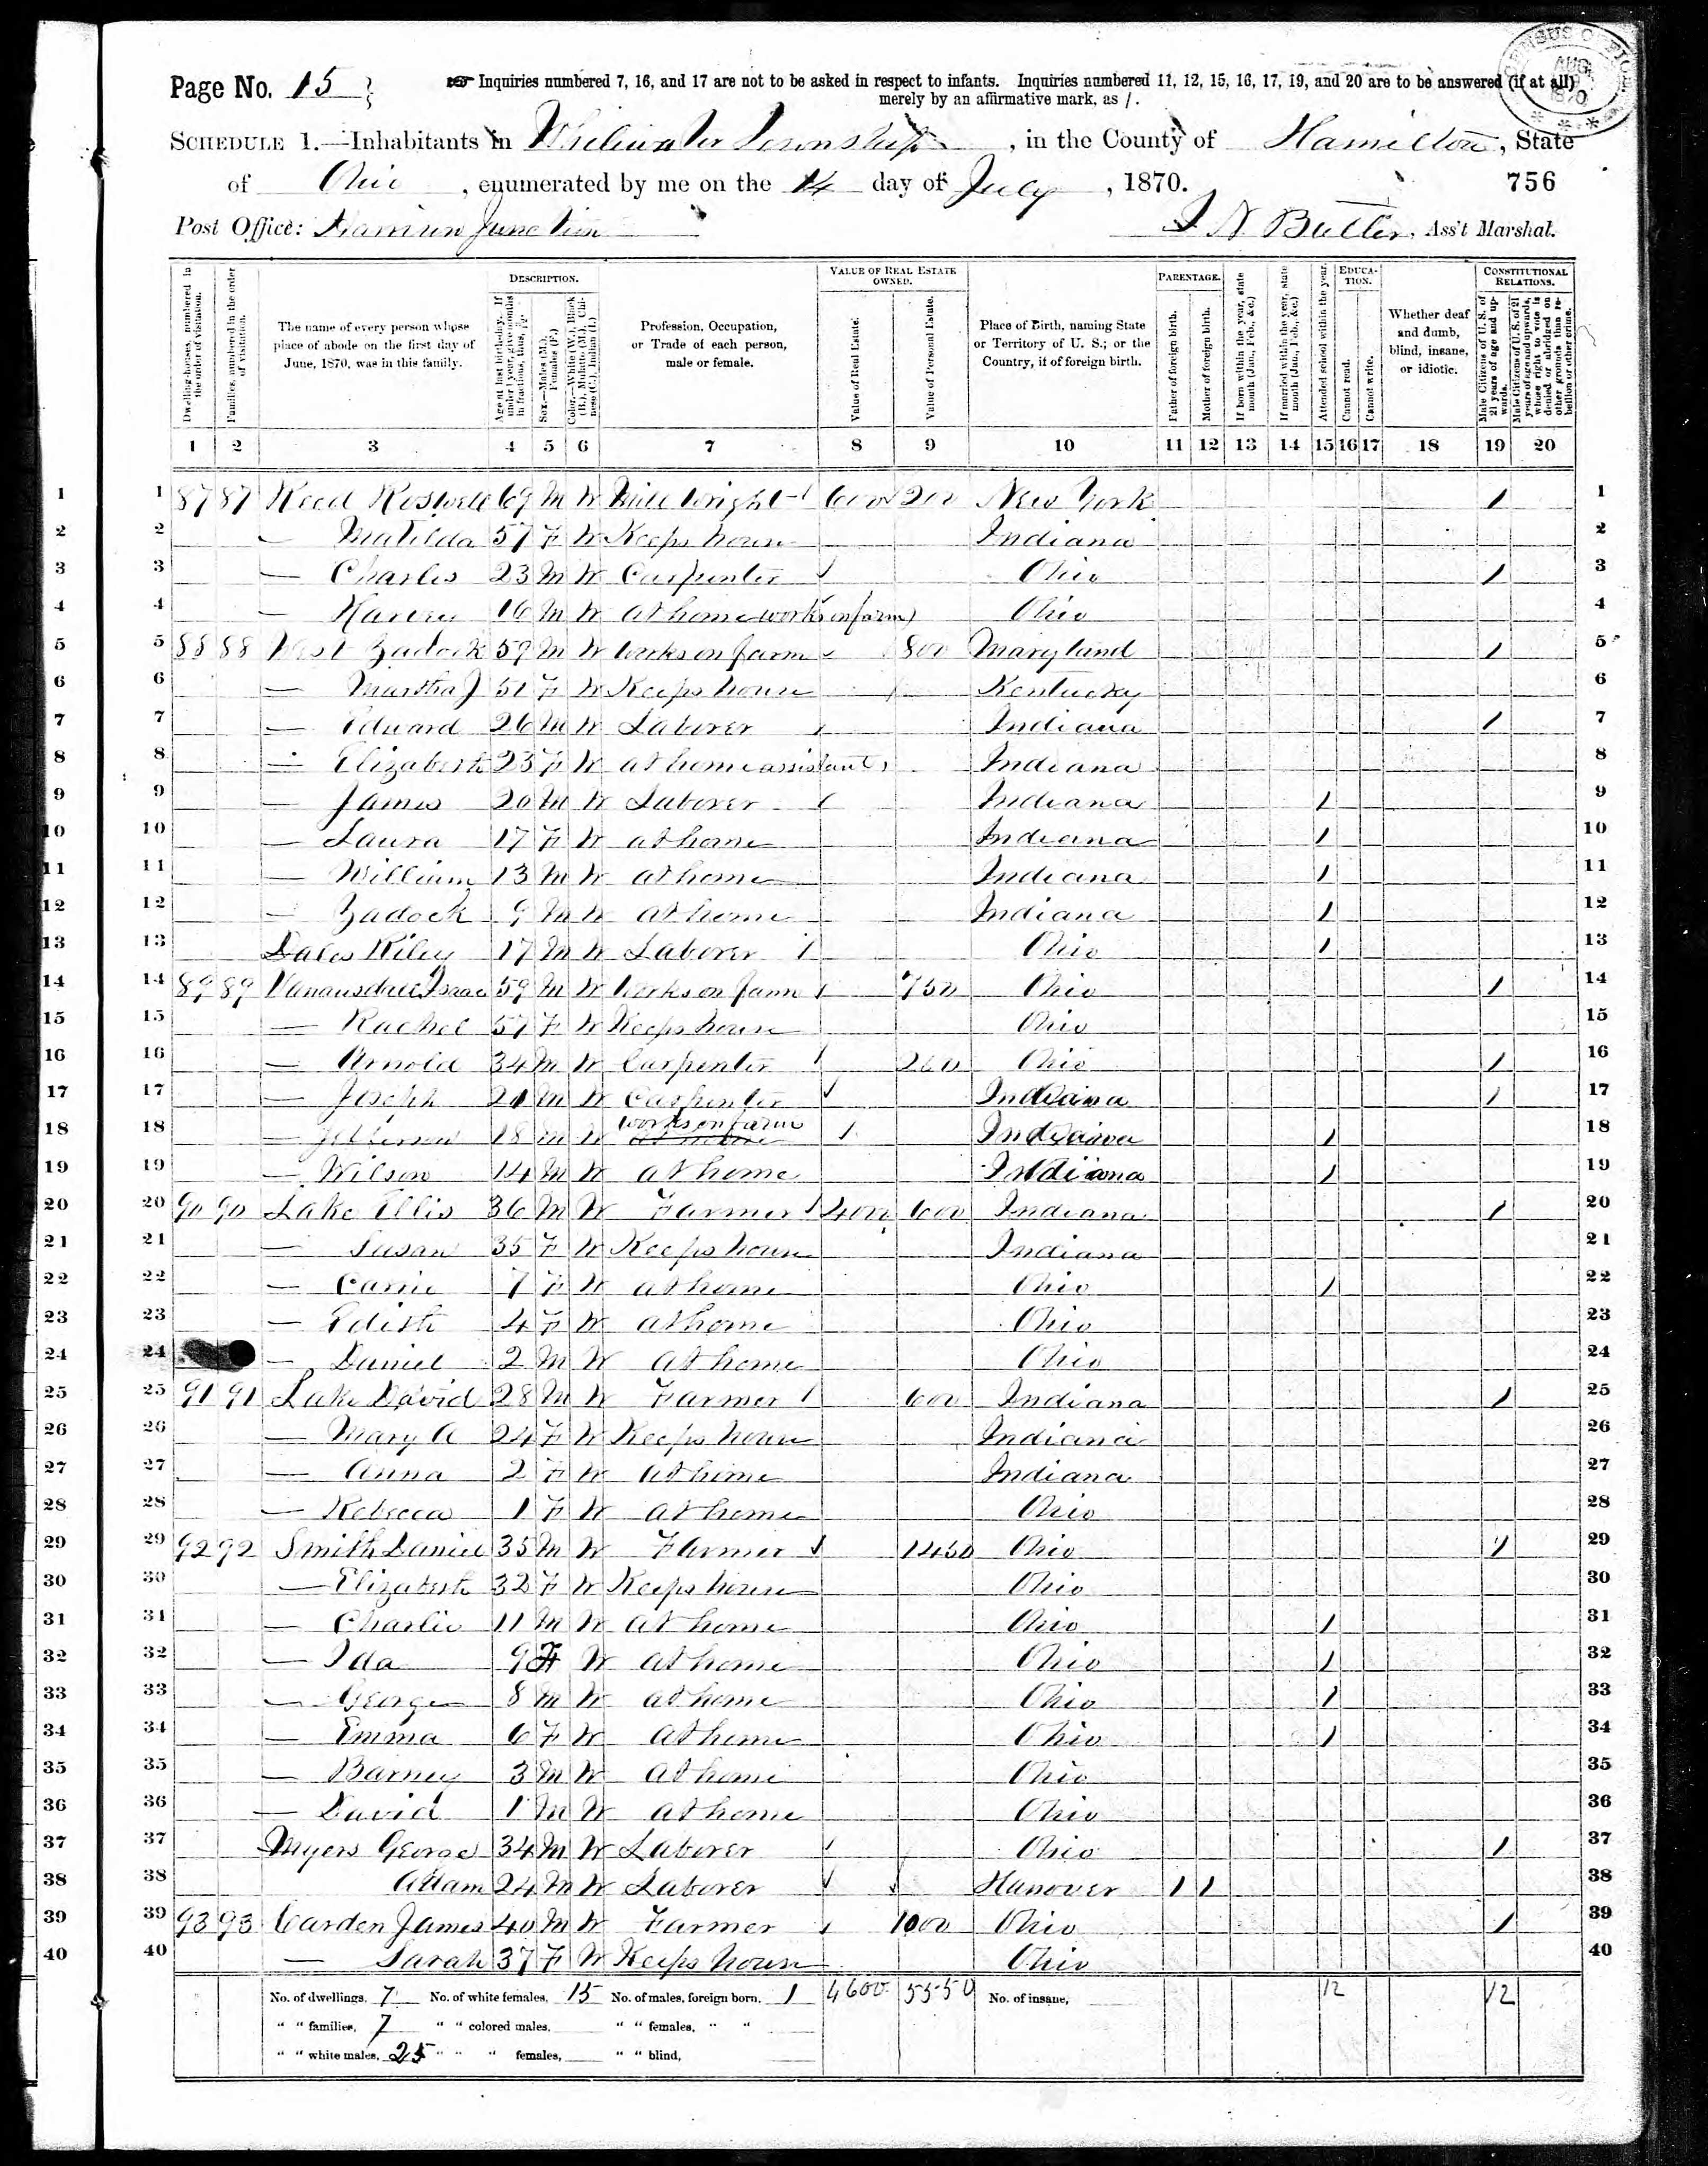 Page No. 15
Inquiries numbered 7, 16, and 17 are not to be asked in respect to infants. Inquiries numbered 11, 12, 15, 16, 17, 19, and 20 are to be answered (if at all)
merely by an affirmative mark, as /.
CENSUS OFFICE AUG 1870
SCHEDULE 1.—Inhabitants in Whitewater Township, in the County of Hamilton, State
of Ohio, enumerated by me on the 14 day of July, 1870. 756
Post Office: Junction N Butler, Ass't Marshal.
Dwelling-houses, numbered in the order of visitation.
Families, numbered in the order of visitation.
The name of every person whose place of abode on the first day of June, 1870, was in this family.
DESCRIPTION.
Age at last birth-day. If under 1 year, give months in fractions, thus,
Sex.—Males (M.), Females (F.)
Color.—White (W.), Black (B.), Mulatto (M.), Chinese (C.), Indian (I.)
Profession, Occupation, or Trade of each person, male or female.
VALUE OF REAL ESTATE OWNED.
Value of Real Estate.
Value of Personal Estate.
Place of Birth, naming State or Territory of U. S.; or the Country, if of foreign birth.
PARENTAGE.
Father of foreign birth.
Mother of foreign birth.
If born within the year, state month (Jan., Feb., &c.)
If married within the year, state month (Jan., Feb., &c.)
EDUCATION.
Attended school within the year.
Cannot read.
Cannot write.
Whether deaf and dumb, blind, insane, or idiotic.
CONSTITUTIONAL RELATIONS.
Male Citizens of U. S. of 21 years of age and upwards.
Male Citizens of U. S. of 21 years of age and upwards, whose right to vote is denied or abridged on other grounds than rebellion or other crime.
1 2 3 4 5 6 7 8 9 10 11 12 13 14 15 16 17 18 19 20
1 1 87 87 Reed Roswell 69 M W Mill wright 600 200 New York / 1
2 2 — Matilda 57 F W Keeps house Indiana 2
3 3 — Charles 23 M W Carpenter Ohio / 3
4 4 — Harvey 16 M W at home works on farm Ohio 4
5 5 88 88 West Zadock 59 M W Works on farm 800 Maryland / 5
6 6 — Martha J 51 F W Keeps house Kentucky 6
7 7 — Edward 26 M W Laborer Indiana / 7
8 8 — Elizabeth 23 F W at home assistant Indiana 8
9 9 — James 20 M W Laborer Indiana / 9
10 10 — Laura 17 F W at home Indiana / 10
11 11 — William 13 M W at home Indiana / 11
12 12 — Zadock 9 M W at home Indiana / 12
13 13 Riley 17 M W Laborer Ohio / 13
14 14 89 89 Vanausdall Isaac 59 M W Works on farm 750 Ohio / 14
15 15 — Rachel 57 F W Keeps house Ohio 15
16 16 — Arnold 34 M W Carpenter Ohio / 16
17 17 — Joseph 21 M W Carpenter Indiana / 17
18 18 — Jefferson 18 M W works on farm at home Indiana / 18
19 19 — Wilson 14 M W at home Indiana / 19
20 20 90 90 Lake Ellis 36 M W Farmer 4000 600 Indiana / 20
21 21 — Susan 35 F W Keeps house Indiana 21
22 22 — Carrie 7 F W at home Ohio / 22
23 23 — Edith 4 F W at home Ohio 23
24 24 — Daniel 2 M W at home Ohio 24
25 25 91 91 Lake David 28 M W Farmer 600 Indiana / 25
26 26 — Mary A 24 F W Keeps house Indiana 26
27 27 — Anna 2 F W at home Indiana 27
28 28 — Rebecca 1 F W at home Ohio 28
29 29 92 92 Smith Daniel 35 M W Farmer Ohio / 29
30 30 — Elizabeth 32 F W Keeps house Ohio 30
31 31 — Charlie 11 M W at home Ohio / 31
32 32 — Ida 9 F W at home Ohio / 32
33 33 — George 8 M W at home Ohio / 33
34 34 — Emma 6 F W at home Ohio / 34
35 35 — Barney 3 M W at home Ohio 35
36 36 — David 1 M W at home Ohio 36
37 37 Myers George 34 M W Laborer Ohio / 37
38 38 Adam 24 M W Laborer Hanover / / 38
39 39 93 93 Carden James 40 M W Farmer 1000 Ohio / 39
40 40 — Sarah 37 F W Keeps house Ohio 40
No. of dwellings, 7 No. of white females, 15 No. of males, foreign born, 1 4600 5550 No. of insane, 12 12
" " families, 7 " " colored males, " " females, " "
" " white males, 25 " " " females, " " blind,